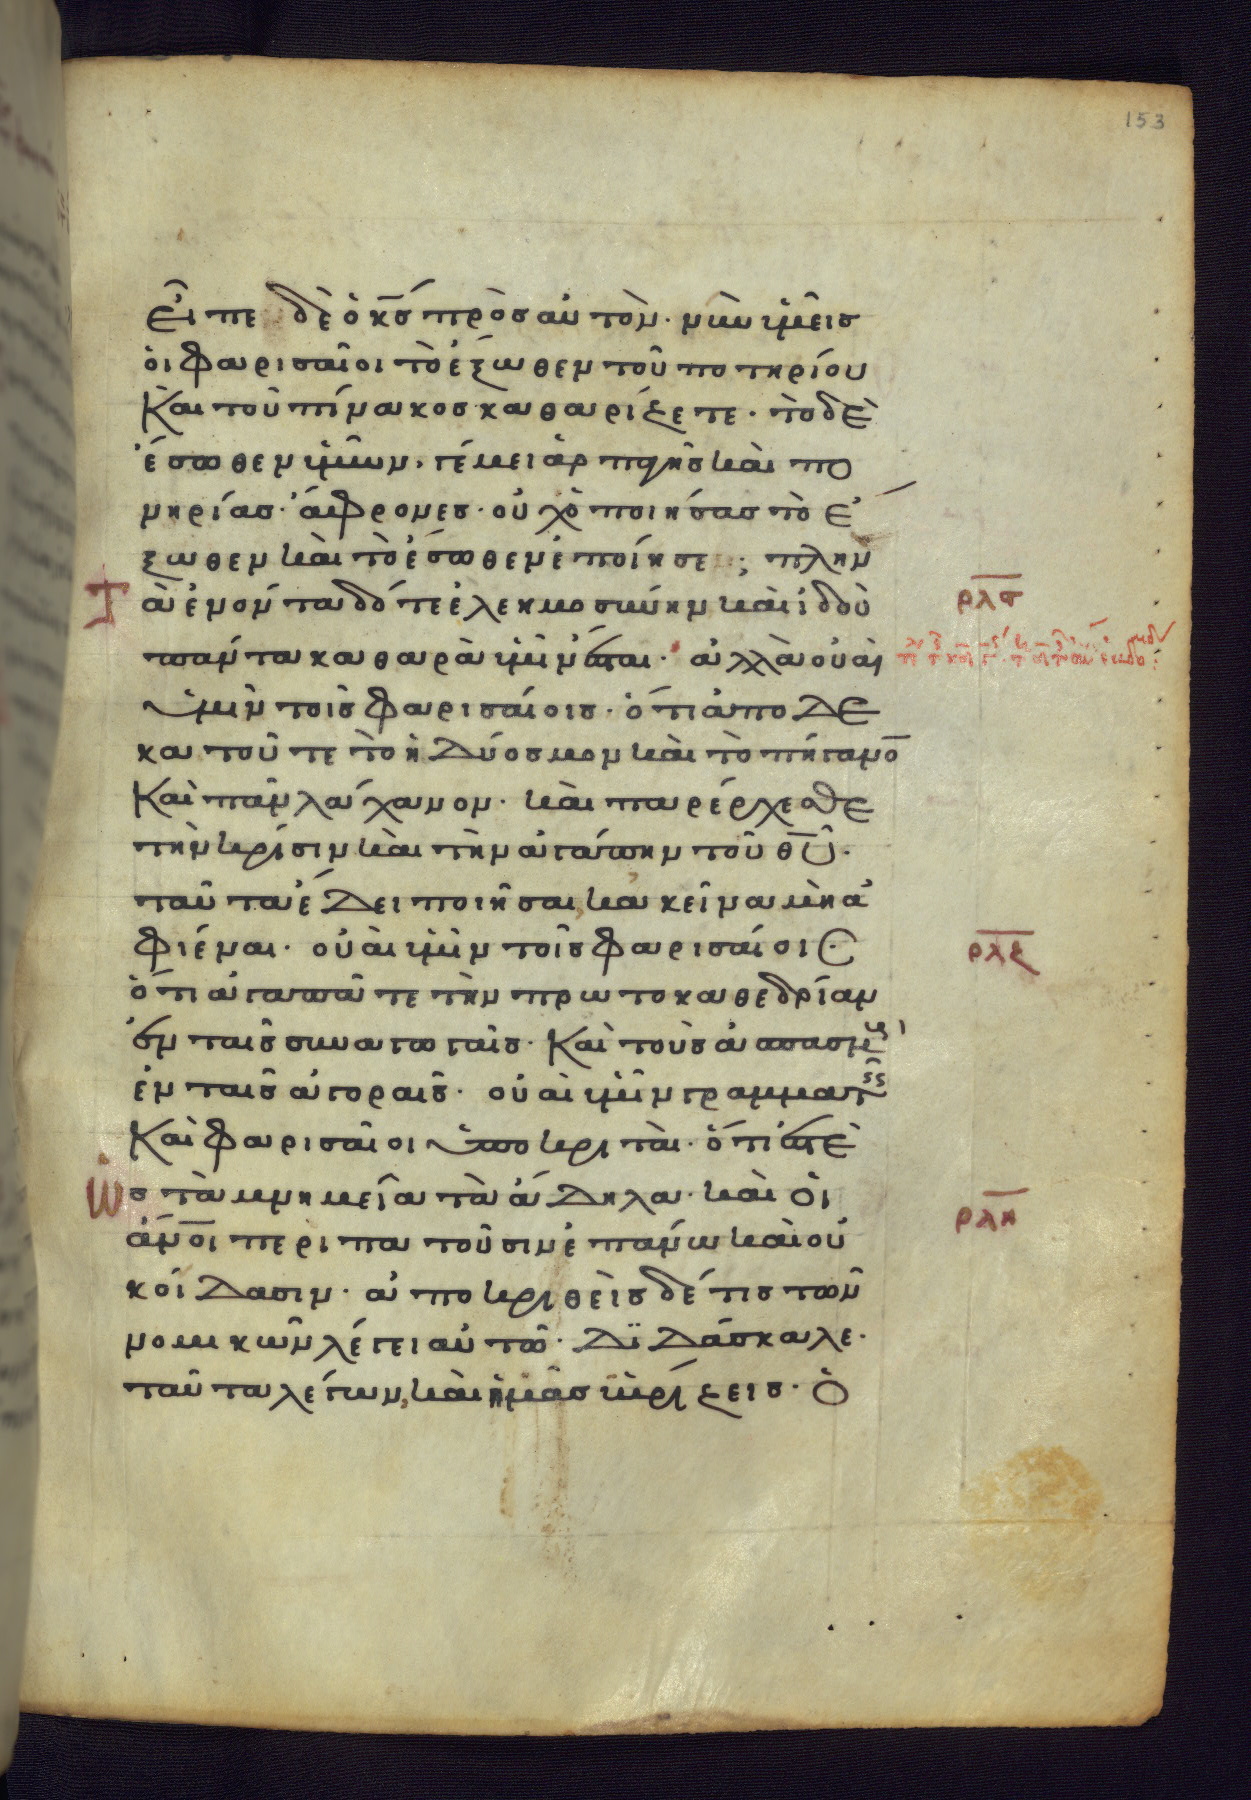 153
Εἶπε δὲ ὁ κ̅ς̅ πρὸς αὐτὸν· νῦν ὑμεῖς
οἱ φαρισαῖοι τὸ ἔξωθεν τοῦ ποτηρίου
καὶ τοῦ πίνακος καθαρίζετε· τὸ δὲ
ἔσωθεν ὑμῶν· γέμει ἁρπαγῆς καὶ πο
νηρίας· ἄφρονες· οὐχ ὁ ποιήσας τὸ ἔ
ξωθεν καὶ τὸ ἔσωθεν ἐποίησε; πλὴν
τὰ ἐνόντα δότε ἐλεημοσύνην καὶ ἰδοὺ
ρ̅λ̅ς̅
πάντα καθαρὰ ὑμῖν ἔσται· ἀλλὰ οὐαὶ
ὑμῖν τοῖς φαρισαίοις· ὅτι ἀποδε
κατοῦτε τὸ ἡδύοσμον καὶ τὸ πήγανο̅
καὶ πᾶν λάχανον· καὶ παρέρχεσθε
τὴν κρίσιν καὶ τὴν ἀγάπην τοῦ θ̅υ̅·
ταῦτα ἔδει ποιῆσαι, κἀκεῖνα μὴ ἀ
φιέναι· οὐαὶ ὑμῖν τοῖς φαρισαίοις·
ρ̅λ̅ζ̅
ὅτι ἀγαπᾶτε τὴν πρωτοκαθεδρίαν
ἐν ταῖς συναγωγαῖς· καὶ τοὺς ἀσπασμοὺς
ἐν ταῖς ἀγοραῖς· οὐαὶ ὑμῖν γραμματεῖς
καὶ φαρισαῖοι ὑποκριταὶ· ὅτι ἐστὲ
ὡς τὰ μνημεῖα τὰ ἄδηλα· καὶ οἱ
ρ̅λ̅η̅
ἄν̅ο̅ι̅ περιπατοῦσιν ἐπάνω καὶ οὐ
κ οἴδασιν· ἀποκριθεὶς δέ τις τῶν
νομικῶν λέγει αὐτῶ· Διδάσκαλε·
ταῦτα λέγων, καὶ ἡμᾶς ὑβρίζεις· ὁ